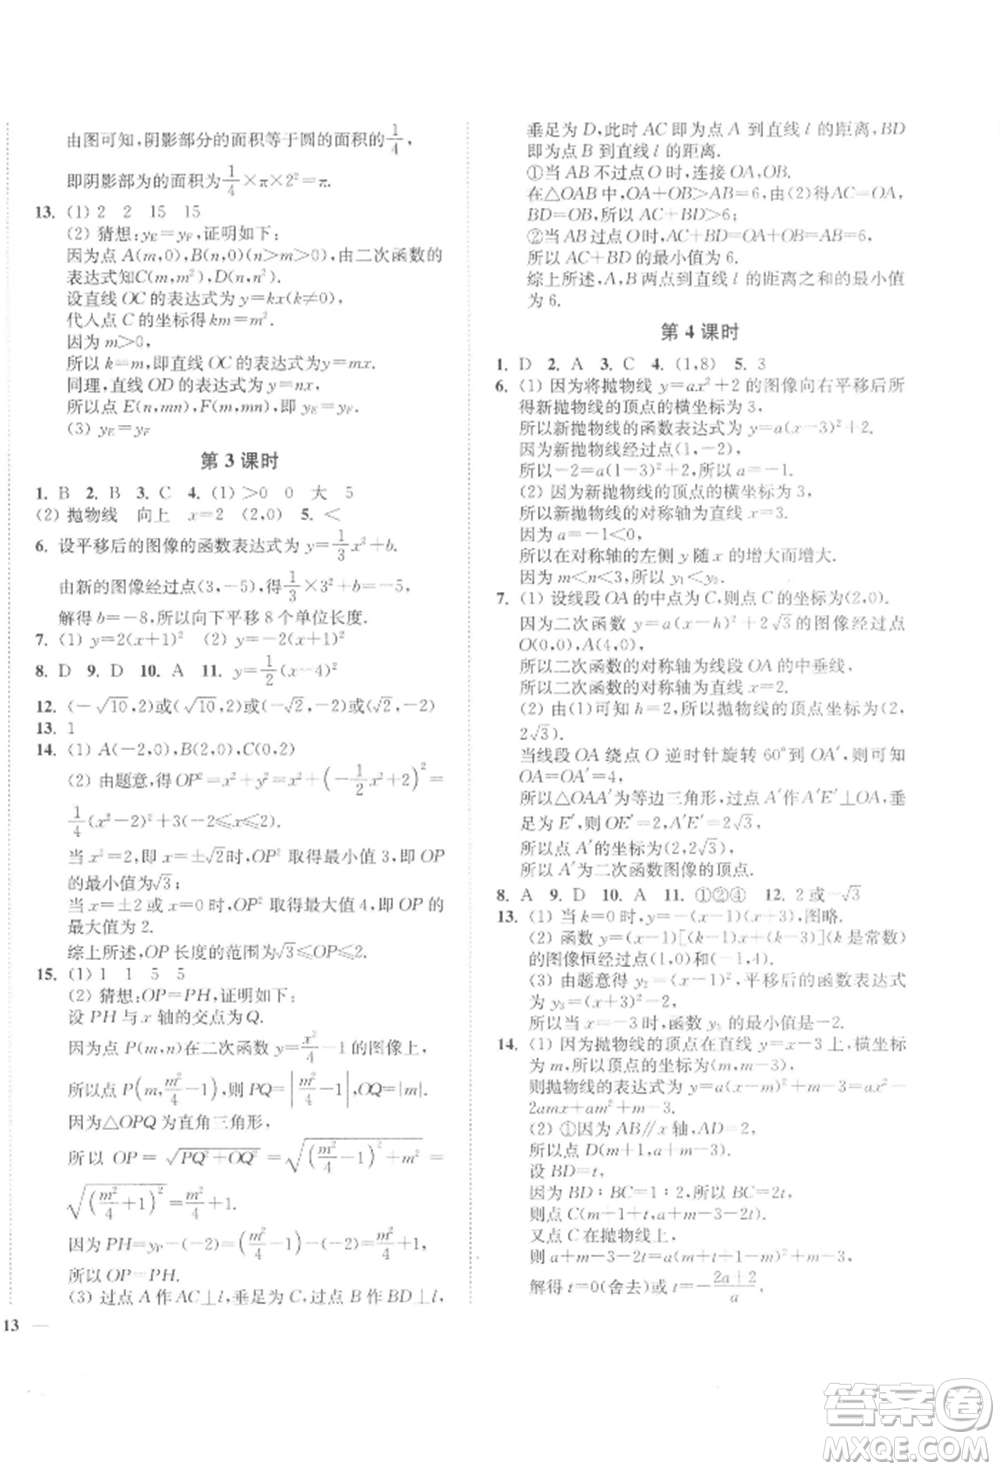 由图可知,阴影部分的面积等于圆的面积的1/4,
即阴影部为的面积为1/4×π×2²=π.
13. (1) 2 2 15 15
(2) 猜想:yE=yF,证明如下:
因为点A(m,0),B(n,0)(n>m>0),由二次函数的
表达式知C(m,m²),D(n,n²).
设直线OC的表达式为y=kx(k≠0),
代人点C的坐标得km=m².
因为m>0,
所以k=m,即直线OC的表达式为y=mx.
同理,直线OD的表达式为y=nx,
所以点E(n,mn),F(m,mn),即yE=yF.
(3) yE=yF
第3课时
1. B 2. B 3. C 4. (1)>0 0 大 5
(2) 抛物线 向上 x=2 (2,0) 5. <
6. 设平移后的图像的函数表达式为y=1/3x²+b.
由新的图像经过点(3,-5),得1/3×3²+b=-5,
解得b=-8,所以向下平移8个单位长度.
7. (1) y=2(x+1)² (2) y=-2(x+1)²
8. D 9. D 10. A 11. y=1/2(x-4)²
12. (-√10,2)或(√10,2)或(-√2,-2)或(√2,-2)
13. 1
14. (1) A(-2,0),B(2,0),C(0,2)
(2) 由题意,得OP²=x²+y²=x²+(-1/2x²+2)²=
1/4(x²-2)²+3(-2≤x≤2).
当x²=2,即x=±√2时,OP²取得最小值3,即OP
的最小值为√3;
当x=±2或x=0时,OP²取得最大值4,即OP的
最大值为2.
综上所述,OP长度的范围为√3≤OP≤2.
15. (1) 1 1 5 5
(2) 猜想:OP=PH,证明如下:
设PH与x轴的交点为Q.
因为点P(m,n)在二次函数y=x²/4-1的图像上,
所以点P(m,m²/4-1),则PQ=|m²/4-1|,OQ=|m|.
因为△OPQ为直角三角形,
所以OP=√(PQ²+OQ²)=√((m²/4-1)²+m²)=
√((m²/4+1)²)=m²/4+1.
因为PH=yP-(-2)=(m²/4-1)-(-2)=m²/4+1,
所以OP=PH.
(3) 过点A作AC⊥l,垂足为C,过点B作BD⊥l,
13
垂足为D,此时AC即为点A到直线l的距离,BD
即为点B到直线l的距离.
①当AB不过点O时,连接OA,OB.
在△OAB中,OA+OB>AB=6,由(2)得AC=OA,
BD=OB,所以AC+BD>6;
②当AB过点O时,AC+BD=OA+OB=AB=6,
所以AC+BD的最小值为6.
综上所述,A,B两点到直线l的距离之和的最小值
为6.
第4课时
1. D 2. A 3. C 4. (1,8) 5. 3
6. (1) 因为将抛物线y=ax²+2的图像向右平移后所
得新抛物线的顶点的横坐标为3,
所以新抛物线的函数表达式为y=a(x-3)²+2.
因为新抛物线经过点(1,-2),
所以-2=a(1-3)²+2,所以a=-1.
(2) 因为新抛物线的顶点的横坐标为3,
所以新抛物线的对称轴为直线x=3.
因为a=-1<0,
所以在对称轴的左侧y随x的增大而增大.
因为m<n<3,所以y₁<y₂.
7. (1) 设线段OA的中点为C,则点C的坐标为(2,0).
因为二次函数y=a(x-h)²+2√3的图像经过点
O(0,0),A(4,0),
所以二次函数的对称轴为线段OA的中垂线,
所以二次函数的对称轴为直线x=2.
(2) 由(1)可知h=2,所以抛物线的顶点坐标为(2,
2√3).
当线段OA绕点O逆时针旋转60°到OA′,可知
OA=OA′=4,
所以△OAA′为等边三角形,过点A′作A′E′⊥OA,垂
足为E′,则OE′=2,A′E′=2√3,
所以点A′的坐标为(2,2√3),
所以A′为二次函数图像的顶点.
8. A 9. D 10. A 11. ①②④ 12. 2或-√3
13. (1) 当k=0时,y=-(x-1)(x+3),图略.
(2) 函数y=(x-1)[(k-1)x+(k-3)](k是常数)
的图像恒经过点(1,0)和(-1,-4).
(3) 由题意得y₂=(x-1)²,平移后的函数表达式
为y₃=(x+3)²-2,
所以当x=-3时,函数y₃的最小值是-2.
14. (1) 因为抛物线的顶点在直线y=x-3上,横坐标
为m,所以顶点的坐标为(m,m-3),
则抛物线的表达式为y=a(x-m)²+m-3=ax²-
2amx+am²+m-3.
(2) ①因为AB∥x轴,AD=2,
所以点D(m,a+m-3).
设BD=t,
因为BD∶BC=1∶2,所以BC=2t,
则点C(m+1+t,a+m-3-2t).
又点C在抛物线上,
所以a+m-3-2t=a(m+1+t-m)²+m-3,
解得t=0(舍去)或t=-(2a+2)/a,
答案圈
MXQE.COM